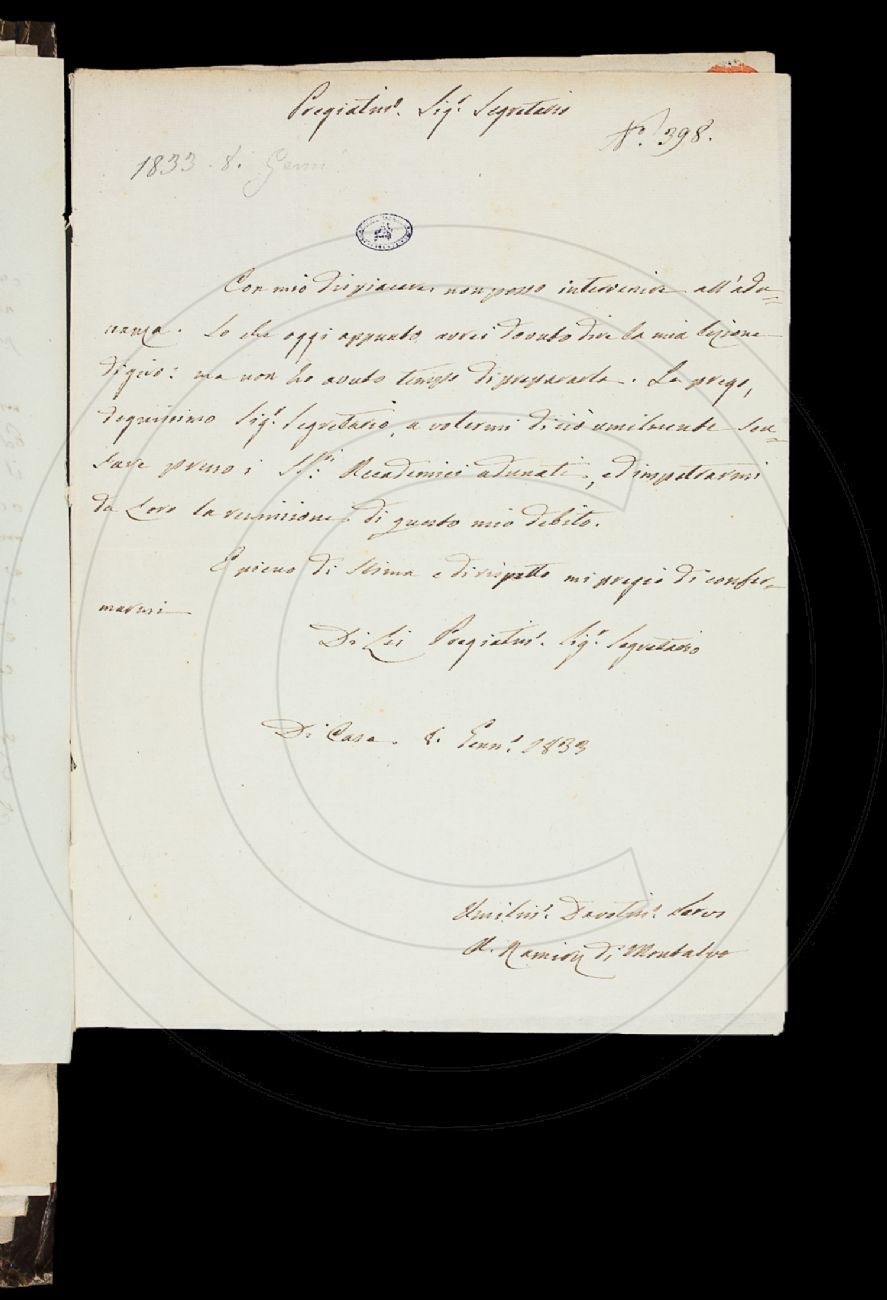 Pregiatis.º Sig.r Segretario
N.º 398.
1833. 8. Genn.º
Con mio dispiacere non posso intervenire all'adu=
nanza. So che oggi appunto avrei dovuto dire la mia lezione
di giro: ma non ho avuto tempo di prepararla. La prego,
degnissimo Sig.r Segretario, a volermi di ciò umilmente scu=
sare presso i SS.ri Accademici adunati, ed impetrarmi
da Loro la remissione di questo mio debito.
E pieno di stima e di rispetto mi pregio di confer=
marmi
Di Lei Pregiatis.º Sig.r Segretario
Di Casa. 8. Genn.º 1833
Umilis.º Devotis.º Servo
A. Ramirez di Montalvo